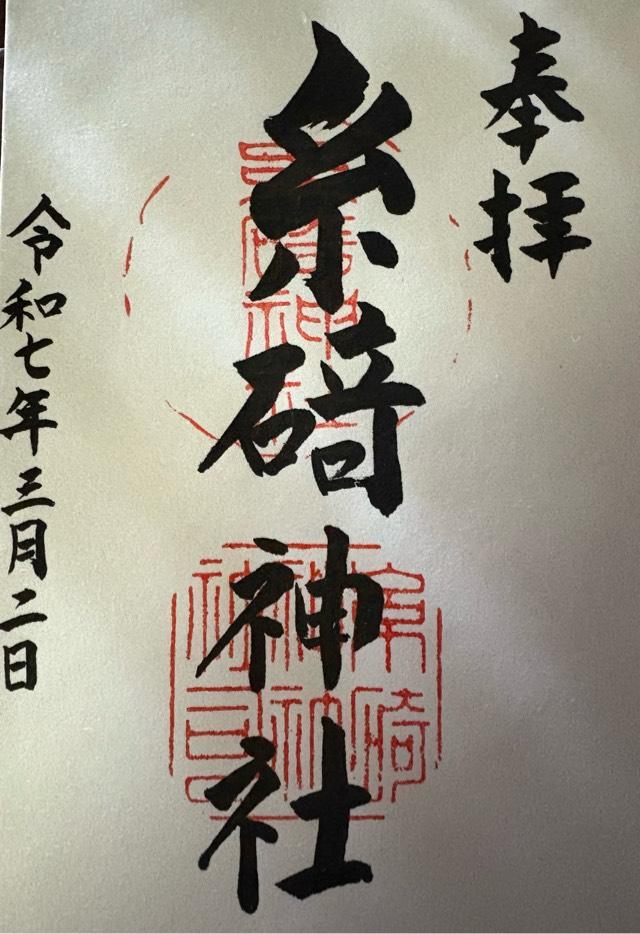 奉拝
糸碕神社
令和七年三月二日